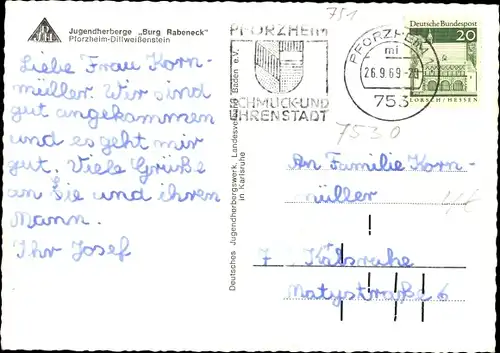 751
Jugendherberge „Burg Rabeneck"
Pforzheim-Dillweißenstein
Liebe Frau Korn-
müller. Wir sind
gut angekommen
und es geht mir
gut. Viele Grüße
an Sie und ihren
Mann.
Ihr Josef
Deutsches Jugendherbergswerk, Landesverband Baden e.V.
in Karlsruhe
PFORZHEIM
SCHMUCK-UND
UHRENSTADT
PFORZHEIM 1
mi
26.9.69-20
753
Deutsche Bundespost
20
LORSCH/HESSEN
7530
An Familie Korn-
müller
7 Kälsruhe
Matystraße 6